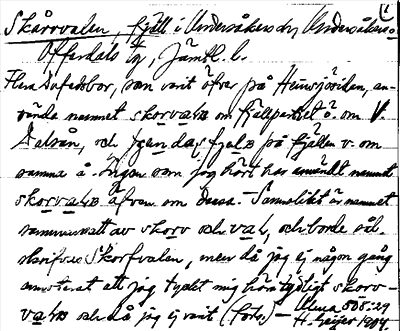 Skårrvalen, fjäll i Undersåkers och Undersåkers o.
Offerdals tg, Jämtl. l.
Flera Dufedsbor, som varit öfver på Hemsjösidan, an-
vände namnet skorvaln om fjällpartiet ö. om V.
Dalsån, och fjällen v. om
samma å. Ingen som jag hört har användt namnet
skorvaln äfven om dessa. Sannolikt är namnet
sammansatt av skorv och val, och borde så
skrifvas Skorfvalen, men då jag ej någon gång
antecknat att jag tyckt mig höra tydligt skorv-
valn och då jag ej varit (forts.) — Alma 505:29
H. Geijer 1904.